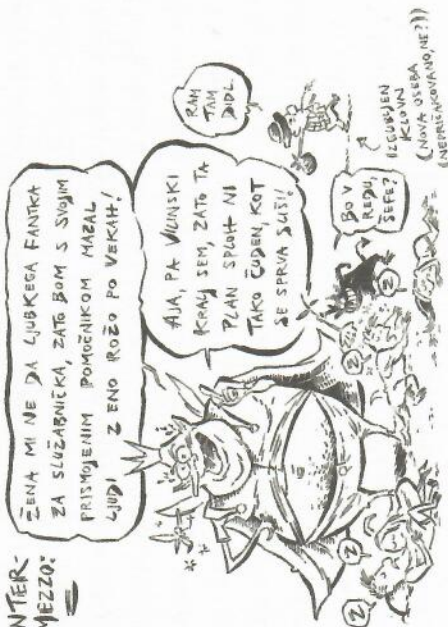 INTER-
MEZZO:
ŽENA MI NE DA LJUBKEGA FANTKA
ZA SLUŽABNIČKA, ZATO BOM S SVOJIM
PRISMOJENIM POMOČNIKOM MAZAL
LJUDI Z ENO ROŽO PO VEKAH!
AJA, PA VILINSKI
KRALJ SEM, ZATO TA
PLAN SPLOH NI
TAKO ČUDEN, KOT
SE SPRVA SLIŠI!
RAM
TAM
DIDL
BO V
REDU,
ŠEFE?
IZGUBLJEN
KLOVN
(NOVA OSEBA
(NEPRIČAKOVANO, NE?))
Z
Z
Z
Z
Z